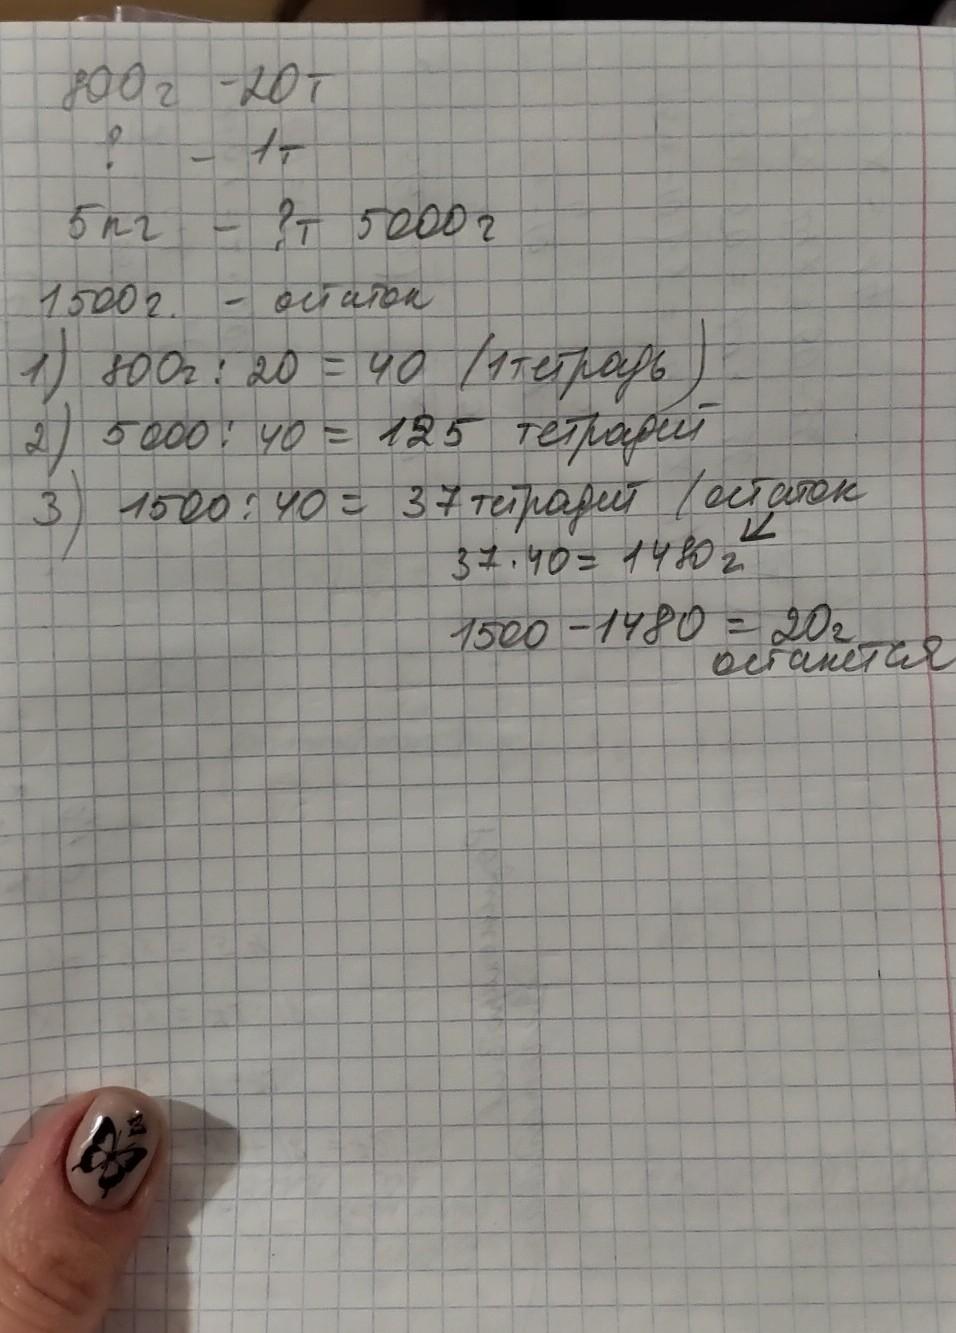 800г - 20т
? - 1т
5кг - ?т 5000г
1500г. - остаток
1) 800г : 20 = 40 (1 тетрадь)
2) 5000 : 40 = 125 тетрадей
3) 1500 : 40 = 37 тетрадей (остаток
37 · 40 = 1480г
1500 - 1480 = 20г
останется